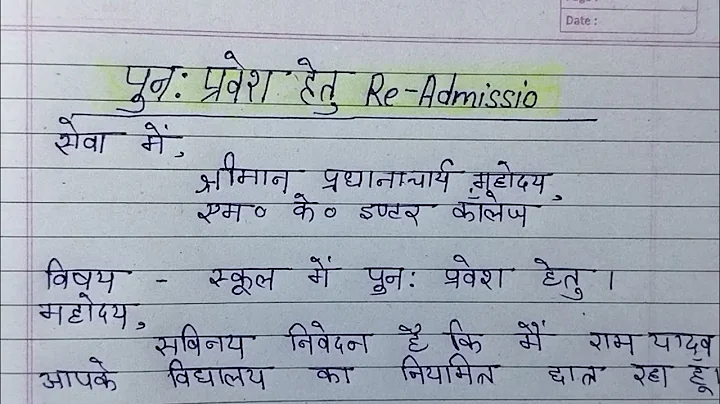 Date :
पुन: प्रवेश हेतु Re-Admissio
सेवा में,
श्रीमान प्रधानाचार्य महोदय,
एम० के० इण्टर कॉलेज
विषय - स्कूल में पुन: प्रवेश हेतु ।
महोदय,
सविनय निवेदन है कि मैं राम यादव
आपके विद्यालय का नियमित छात्र रहा हू।